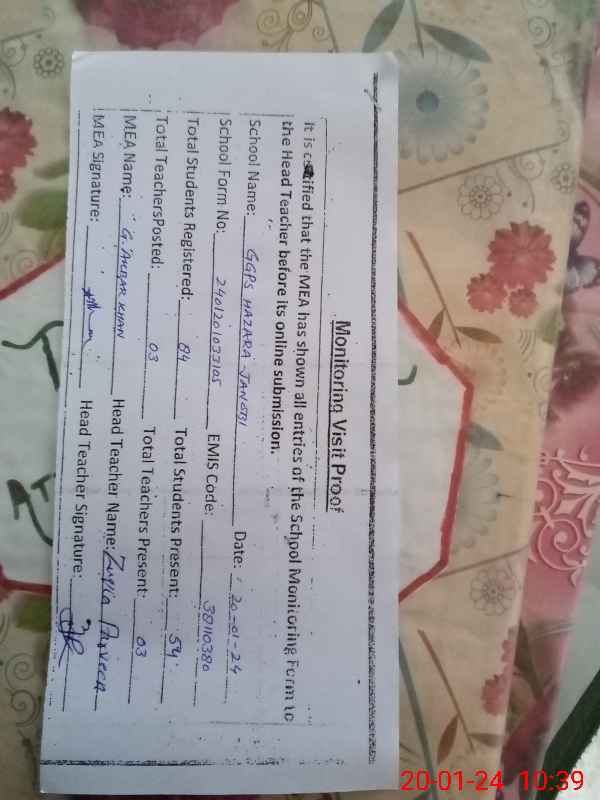 Monitoring Visit Proof
It is certified that the MEA has shown all entries of the School Monitoring Form to
the Head Teacher before its online submission.
School Name: GGPS HAZARA JANOBI Date: 20-01-24
School Form No: 2401201033105 EMIS Code: 38110380
Total Students Registered: 84 Total Students Present: 54
Total TeachersPosted: 03 Total Teachers Present: 03
MEA Name: G. AKBAR KHAN Head Teacher Name: Parveen
MEA Signature: Head Teacher Signature:
20-01-24 10:39